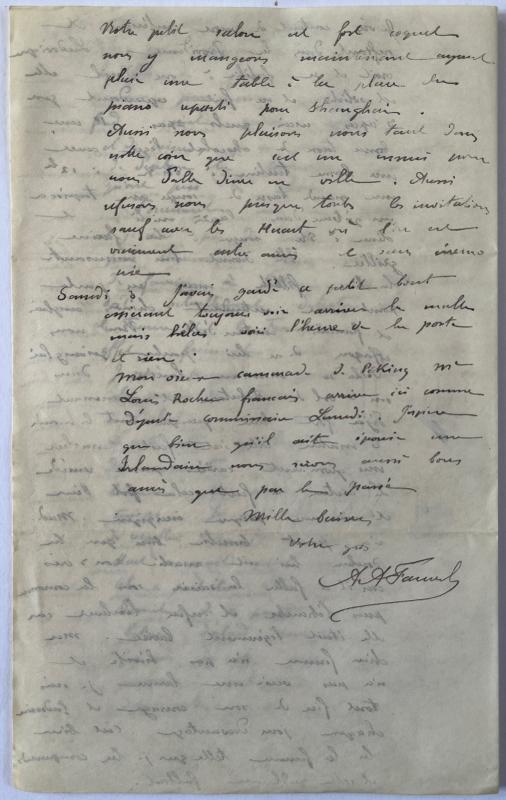 Votre petit salon est fort coquet
nous y mangeons maintenant ayant
placé une table à la place du
piano reparti pour Shanghai.
Aussi nous plaisons nous tant dans
notre coin que c'est un ennui pour
nous d'aller dîner en ville. Aussi
refusons nous presque toutes les invitations
sauf avec les Huart où l'on est
vraiment entre amis et sans cérémo
nie
Samedi 8 J'avais gardé ce petit bout
espérant toujours voir arriver la malle
mais hélas voici l'heure de la poste
et rien!
Mon vieux camarade de Péking Mr
Louis Rocher français arrive ici comme
député commissaire Lundi. J'espère
que bien qu'il ait épousé une
Irlandaise nous serons aussi bons
amis que par le passé
Mille baisers
Votre gros
A A Fauvel